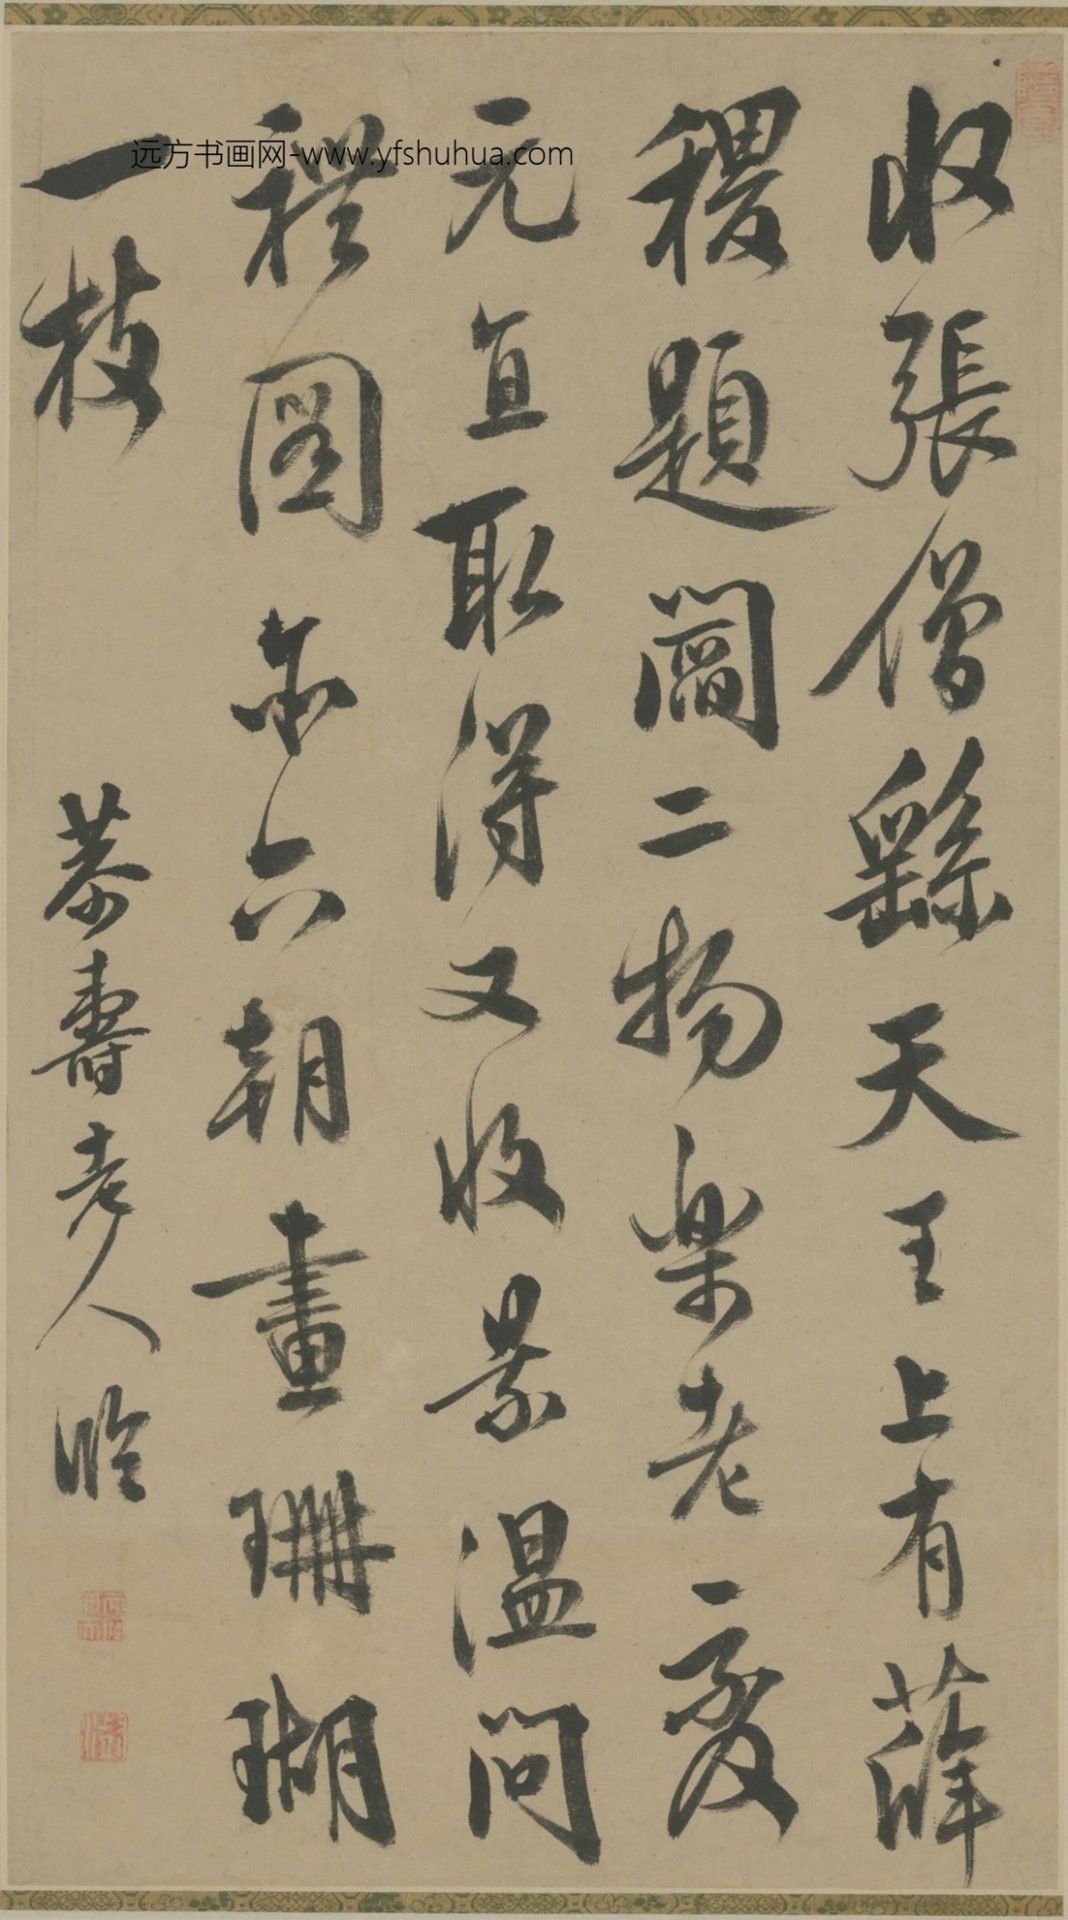 收張僧繇天王上有薛
稷題閻二物樂老處
元直取得又收景溫問
禮圖亦六朝畫珊瑚
一枝
慕壽老人臨
远方书画网-www.yfshuhua.com